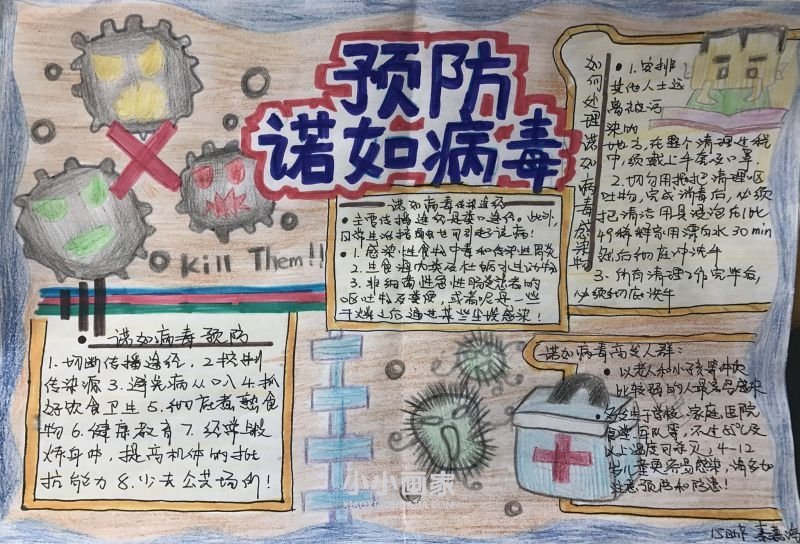 预防
诺如病毒
Kill Them!!
如何处理诺如病毒感染物
1.安排
其他人士远
离被污
染的
地方,在整个清理过程
中,须戴上手套及口罩
2.切勿用拖把清理呕
吐物,完成消毒后,必须
把清洁用具浸泡在1比
49稀释家用漂白水30min
然后彻底冲洗
3.所有清理工作完毕后,
必须彻底洗手
诺如病毒传染途径
主要传播途径是粪口途径,此外
日常生活接触也可引起
1.感染性食物中毒和传染性胃炎
2.生食
3.非细菌性急性肠炎患者的
呕吐物及粪便,或者
干燥之后通过某些尘埃感染!
诺如病毒预防
1.切断传播途径,2.控制
传染源 3.避免病从口入 4.抓
好饮食卫生 5.彻底煮熟食
物 6.健康教育 7.经常锻
炼身体,提高机体的抵
抗能力 8.少去公共场所!
诺如病毒高发人群:
以老人和小孩等
比较弱的人最容易感染
学校、家庭、医院
食堂、
以上温度可杀灭,4-12
岁儿童更容易感染,请多加
注意预防和隐患!
小小画家